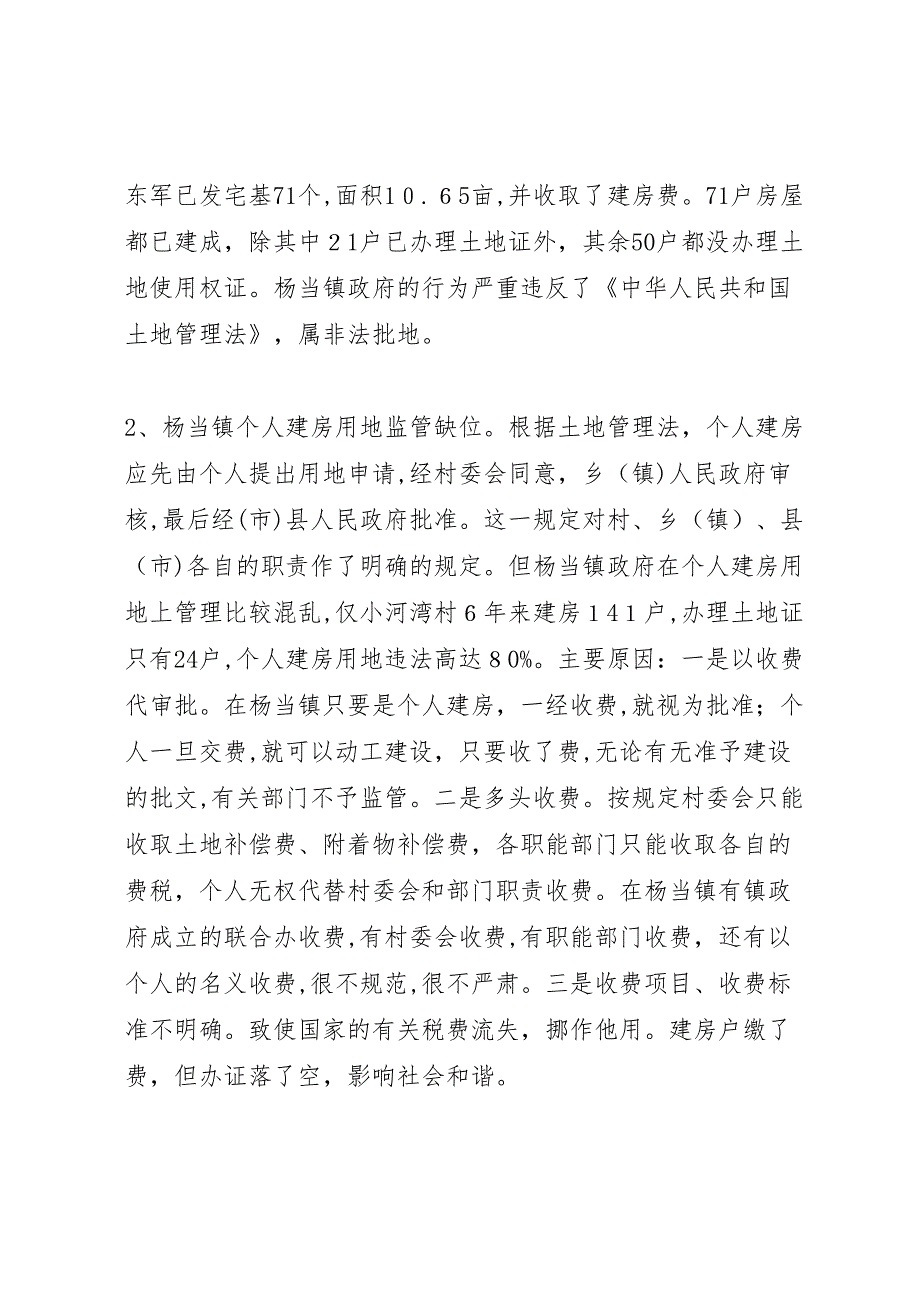 东军已发宅基71个,面积10.65亩,并收取了建房费。71户房屋
都已建成，除其中21户已办理土地证外，其余50户都没办理土
地使用权证。杨当镇政府的行为严重违反了《中华人民共和国
土地管理法》，属非法批地。
2、杨当镇个人建房用地监管缺位。根据土地管理法，个人建房
应先由个人提出用地申请,经村委会同意，乡（镇)人民政府审
核,最后经(市)县人民政府批准。这一规定对村、乡（镇）、县
（市)各自的职责作了明确的规定。但杨当镇政府在个人建房用
地上管理比较混乱,仅小河湾村6年来建房141户,办理土地证
只有24户,个人建房用地违法高达80%。主要原因：一是以收费
代审批。在杨当镇只要是个人建房，一经收费,就视为批准；个
人一旦交费,就可以动工建设，只要收了费,无论有无准予建设
的批文,有关部门不予监管。二是多头收费。按规定村委会只能
收取土地补偿费、附着物补偿费，各职能部门只能收取各自的
费税，个人无权代替村委会和部门职责收费。在杨当镇有镇政
府成立的联合办收费,有村委会收费,有职能部门收费，还有以
个人的名义收费,很不规范,很不严肃。三是收费项目、收费标
准不明确。致使国家的有关税费流失，挪作他用。建房户缴了
费，但办证落了空，影响社会和谐。